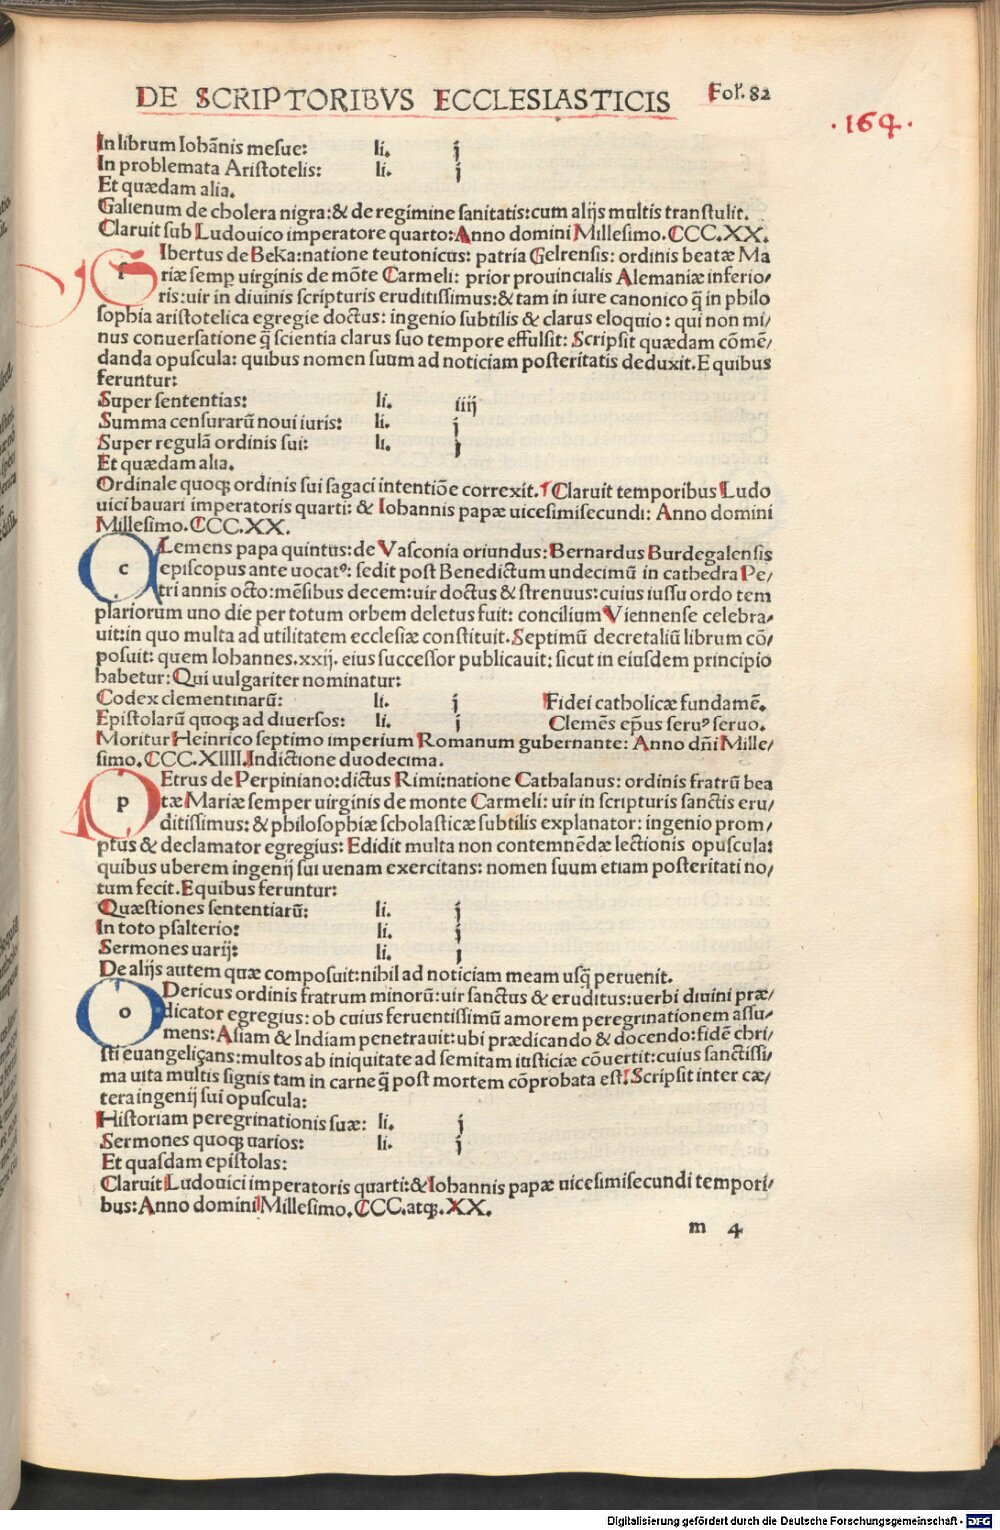 DE SCRIPTORIBVS ECCLESIASTICIS Fol. 82
.164.
In librum Iohānis mesue: li. j
In problemata Aristotelis: li. j
Et quædam alia.
Galienum de cholera nigra:& de regimine sanitatis:cum alijs multis transtulit.
Claruit sub Ludouico imperatore quarto:Anno domini Millesimo.CCC.XX.
SIbertus de Beka:natione teutonicus: patria Gelrensis: ordinis beatæ Ma
riæ semꝑ uirginis de mōte Carmeli: prior prouincialis Alemaniæ inferio/
ris:uir in diuinis scripturis eruditissimus:& tam in iure canonico q̃ in philo
sophia aristotelica egregie doctus: ingenio subtilis & clarus eloquio: qui non mi/
nus conuersatione q̃ scientia clarus suo tempore effulsit: Scripsit quædam cōmē/
danda opuscula: quibus nomen suum ad noticiam posteritatis deduxit.E quibus
feruntur:
Super sententias: li. iiij
Summa censurarū noui iuris: li. j
Super regulā ordinis sui: li. j
Et quædam alia.
Ordinale quoqꝫ ordinis sui sagaci intentiōe correxit. Claruit temporibus Ludo
uici bauari imperatoris quarti: & Iohannis papæ uicesimisecundi: Anno domini
Millesimo.CCC.XX.
CLemens papa quintus:de Vasconia oriundus:Bernardus Burdegalensis
episcopus ante uocatꝰ: sedit post Benedictum undecimū in cathedra Pe/
tri annis octo:mēsibus decem:uir doctus & strenuus:cuius iussu ordo tem
plariorum uno die per totum orbem deletus fuit: concilium Viennense celebra/
uit:in quo multa ad utilitatem ecclesiæ constituit.Septimū decretaliū librum cō/
posuit: quem Iohannes.xxij. eius successor publicauit: sicut in eiusdem principio
habetur:Qui uulgariter nominatur:
Codex clementinarū: li. j Fidei catholicæ fundamē.
Epistolarū quoqꝫ ad diuersos: li. j Clemēs ep̄us seruꝰ seruo.
Moritur Heinrico septimo imperium Romanum gubernante: Anno dn̄i Mille/
simo.CCC.XIIII.Indictione duodecima.
PEtrus de Perpiniano:dictus Rimi:natione Cathalanus: ordinis fratrū bea
tæ Mariæ semper uirginis de monte Carmeli: uir in scripturis sanctis eru/
ditissimus: & philosophiæ scholasticæ subtilis explanator: ingenio prom/
ptus & declamator egregius: Edidit multa non contemnēdæ lectionis opuscula:
quibus uberem ingenij sui uenam exercitans: nomen suum etiam posteritati no/
tum fecit.E quibus feruntur:
Quæstiones sententiarū: li. j
In toto psalterio: li. j
Sermones uarij: li. j
De alijs autem quæ composuit:nihil ad noticiam meam usq̃ peruenit.
ODericus ordinis fratrum minorū:uir sanctus & eruditus:uerbi diuini præ/
dicator egregius: ob cuius feruentissimū amorem peregrinationem assu/
mens: Asiam & Indiam penetrauit:ubi prædicando & docendo:fidē chri/
sti euangeliçans:multos ab iniquitate ad semitam iusticiæ cōuertit:cuius sanctissi/
ma uita multis signis tam in carne q̃ post mortem cōprobata est.Scripsit inter cæ/
tera ingenij sui opuscula:
Historiam peregrinationis suæ: li. j
Sermones quoqꝫ uarios: li. j
Et quasdam epistolas:
Claruit Ludouici imperatoris quarti:& Iohannis papæ uicesimisecundi tempori/
bus:Anno domini Millesimo.CCC.atqꝫ.XX.
m 4
Digitalisierung gefördert durch die Deutsche Forschungsgemeinschaft - DFG